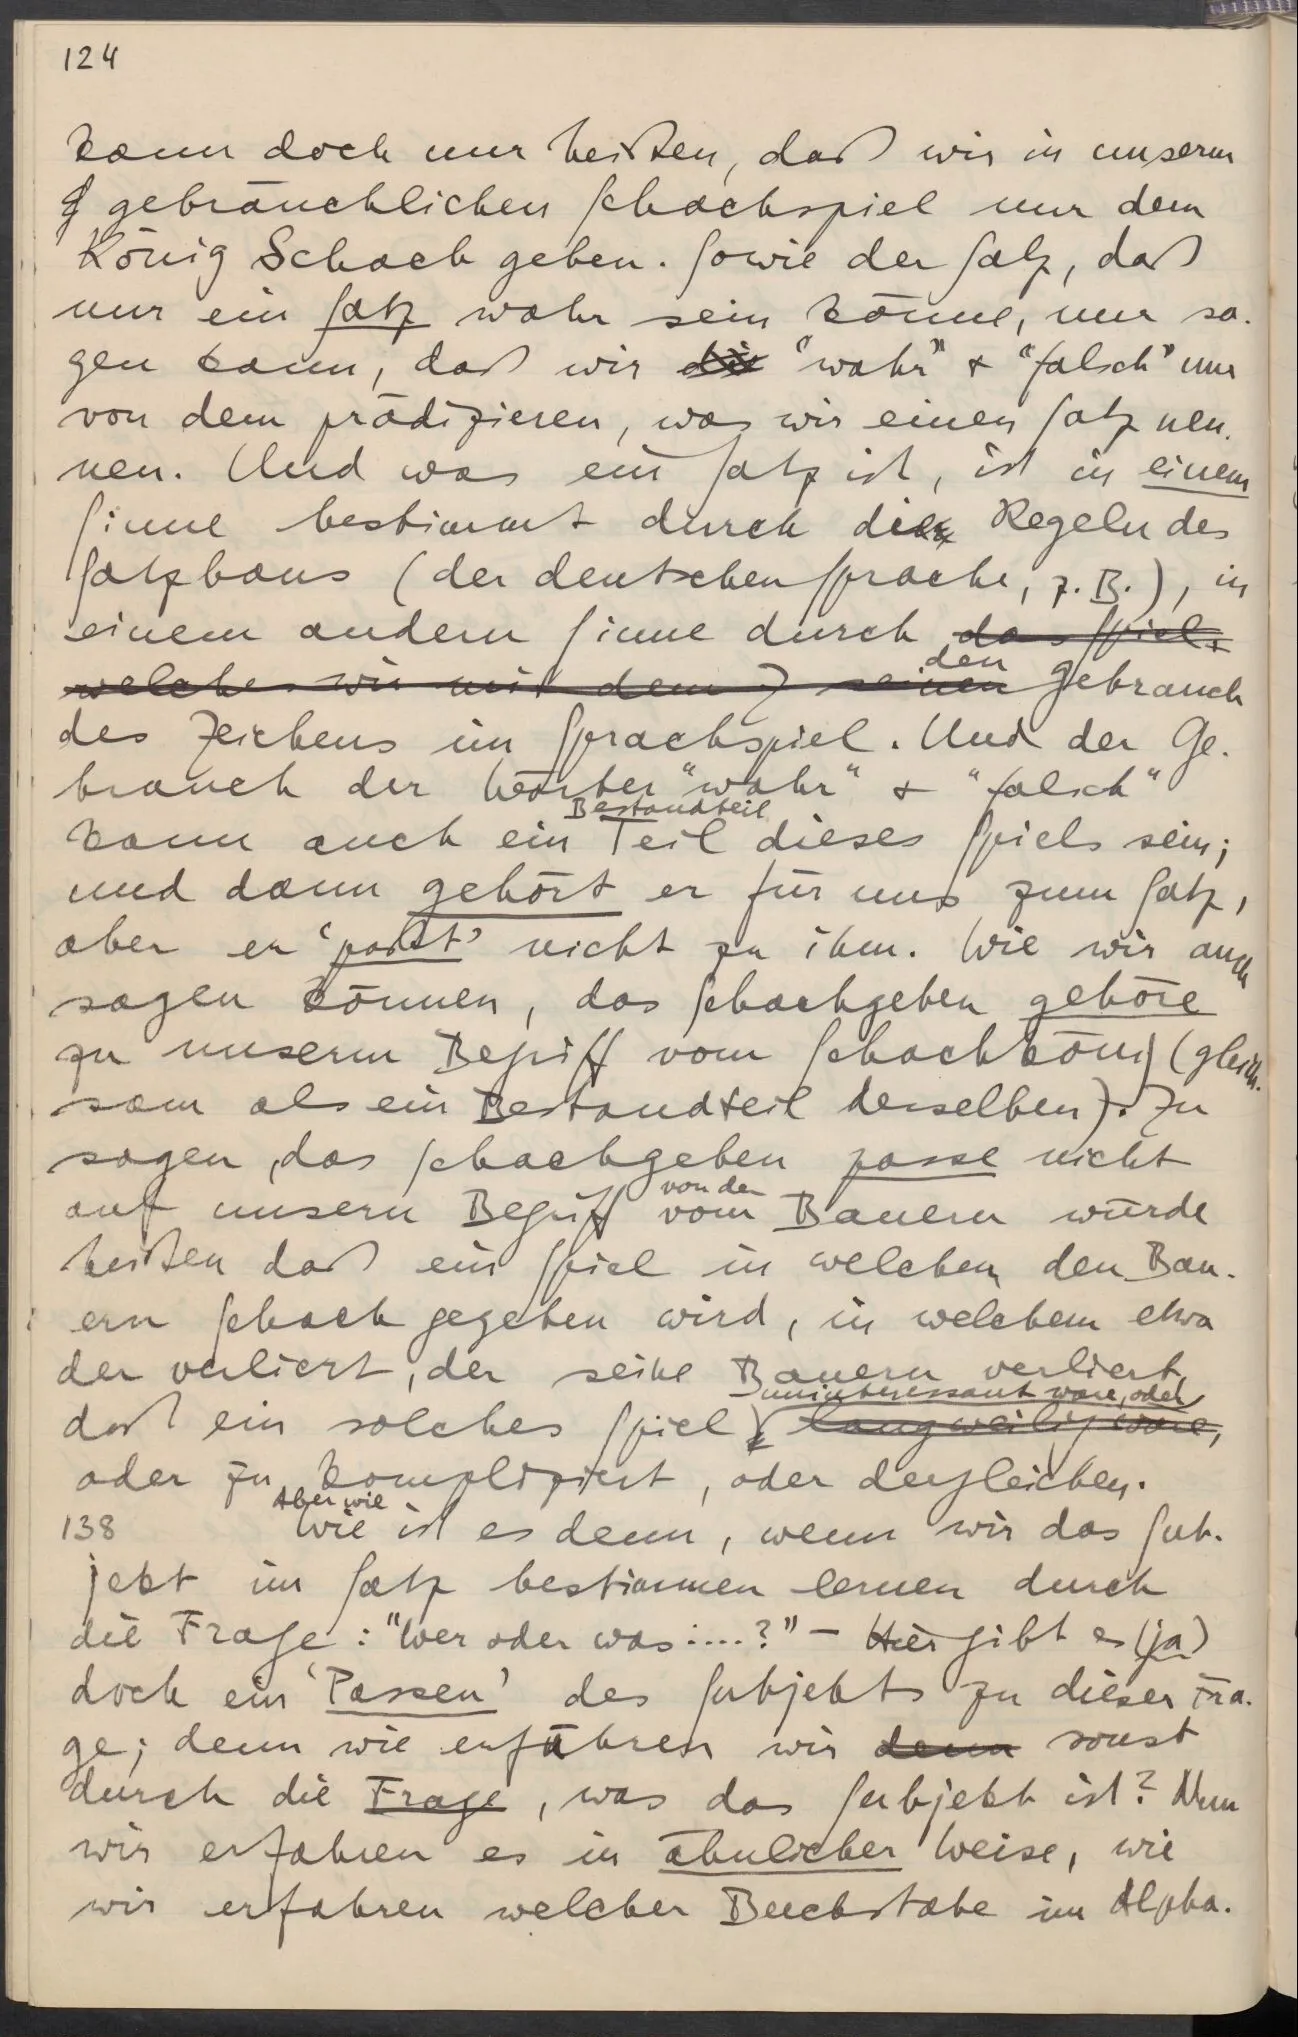 124
kann doch nur heißen, daß wir in unserm
gebräuchlichen Schachspiel nur dem
König Schach geben. Sowie der Satz, daß
nur ein Satz wahr sein könne, nur sa-
gen kann, daß wir die "wahr" & "falsch" nur
von dem prädizieren, was wir einen Satz nen-
nen. Und was ein Satz ist, ist in einem
Sinne bestimmt durch die Regeln des
Satzbaus (der deutschen Sprache, z. B.), in
einem andern Sinne durch das Spiel,
welches wir mit dem Z seinen den Gebrauch
des Zeichens im Sprachspiel. Und der Ge-
brauch der Wörter "wahr" & "falsch"
Bestandteil
kann auch ein Teil dieses Spiels sein;
und dann gehört er für uns zum Satz,
aber er 'paßt' nicht zu ihm. Wie wir auch
sagen können, das Schachgeben gehöre
zu unserm Begriff vom Schachkönig (gleich-
sam als ein Bestandteil desselben). Zu
sagen, das Schachgeben passe nicht
von den
auf unsern Begriff vom Bauern würde
heißen daß ein Spiel in welchem den Bau-
ern Schach gegeben wird, in welchem etwa
der verliert, der seine Bauern verliert,
uninteressant wäre, oder
daß ein solches Spiel langweilig wäre,
oder zu kompliziert, oder dergleichen.
Aber wie
138 Wie ist es denn, wenn wir das Sub-
jekt im Satz bestimmen lernen durch
die Frage: "Wer oder was ....?" – Hier gibt es (ja)
doch ein 'Passen' des Subjekts zu dieser Fra-
ge; denn wie erführen wir denn sonst
durch die Frage, was das Subjekt ist? Nun
wir erfahren es in ähnlicher Weise, wie
wir erfahren welcher Buchstabe im Alpha-